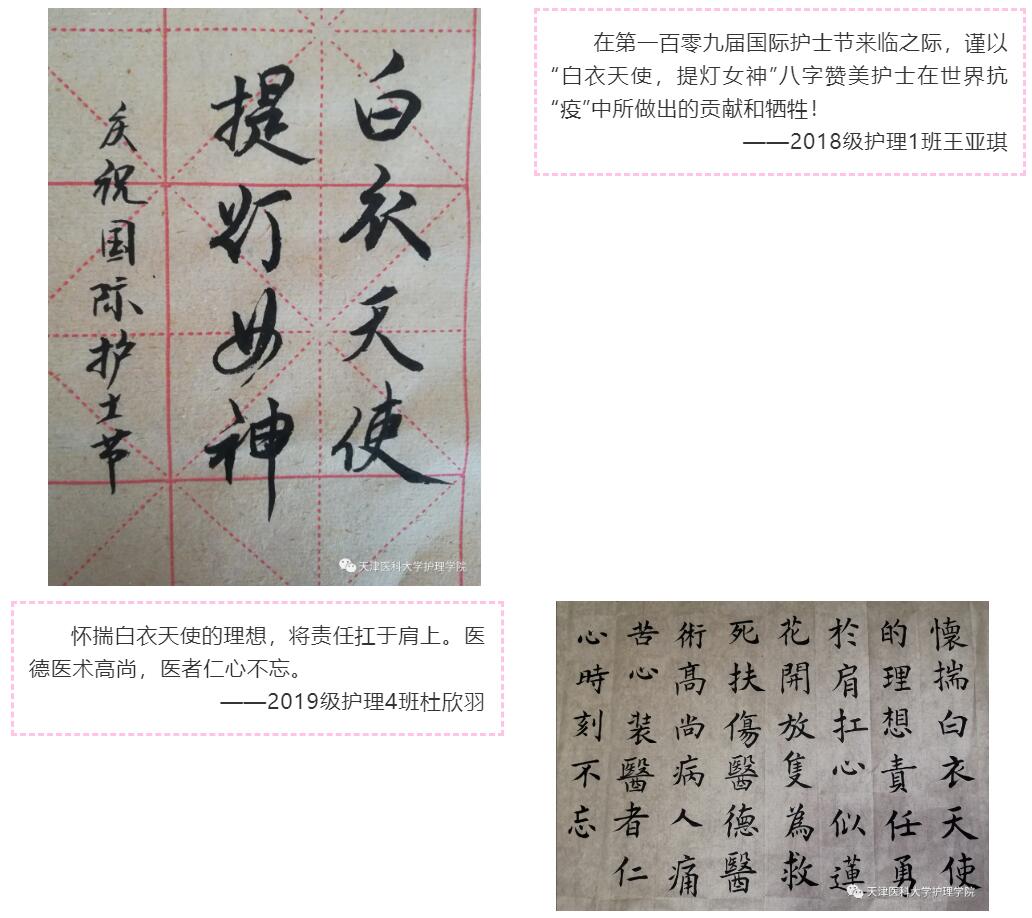 白衣天使
提灯女神
庆祝国际护士节
天津医科大学护理学院
在第一百零九届国际护士节来临之际，谨以
“白衣天使，提灯女神”八字赞美护士在世界抗
“疫”中所做出的贡献和牺牲！
——2018级护理1班王亚琪
怀揣白衣天使的理想，将责任扛于肩上。医
德医术高尚，医者仁心不忘。
——2019级护理4班杜欣羽
懷揣白衣天使
的理想責任勇
於肩扛心似蓮
花開放隻為救
死扶傷醫德醫
術髙尚病人痛
苦心装醫者仁
心時刻不忘
天津医科大学护理学院